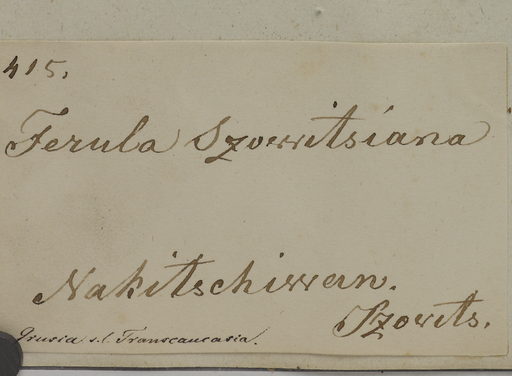 415.
Ferula Szowitsiana
Nakitschiwan.
Szowits.
Grusia s.l. Transcaucasia.